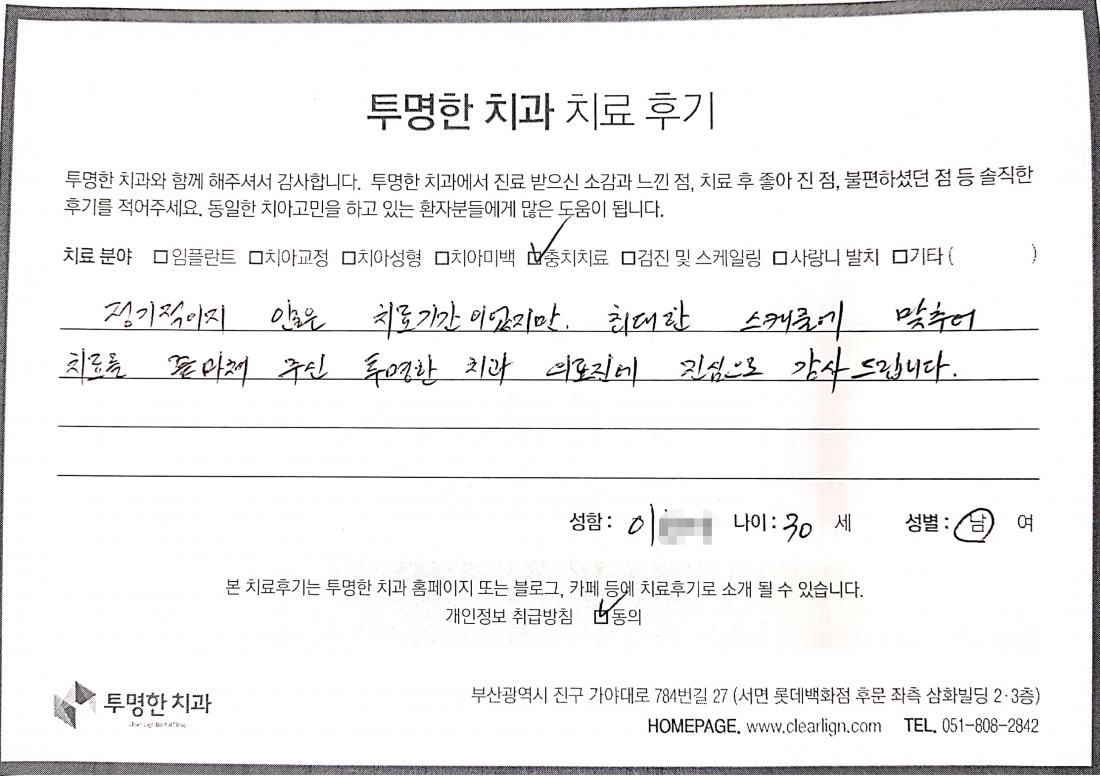 투명한 치과 치료 후기
투명한 치과와 함께 해주셔서 감사합니다. 투명한 치과에서 진료 받으신 소감과 느낀 점, 치료 후 좋아 진 점, 불편하셨던 점 등 솔직한
후기를 적어주세요. 동일한 치아고민을 하고 있는 환자분들에게 많은 도움이 됩니다.
치료 분야 □임플란트 □치아교정 □치아성형 □치아미백 ☑충치치료 □검진 및 스케일링 □사랑니 발치 □기타 ( )
정기적이지 않은 치료기간이었지만, 최대한 스케줄에 맞추어
치료를 해주신 투명한 치과 의료진에 진심으로 감사드립니다.
성함: 이 나이: 30 세 성별: 남 여
본 치료후기는 투명한 치과 홈페이지 또는 블로그, 카페 등에 치료후기로 소개 될 수 있습니다.
개인정보 취급방침 ☑동의
투명한 치과
부산광역시 진구 가야대로 784번길 27 (서면 롯데백화점 후문 좌측 삼화빌딩 2·3층)
HOMEPAGE. www.clearlign.com TEL. 051-808-2842